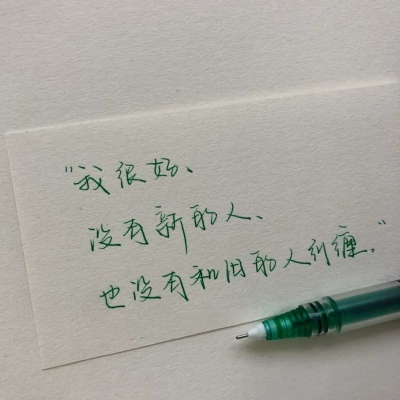 "我很好、
没有新的人、
也没有和旧的人纠缠。"